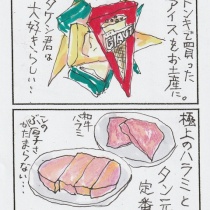 ドンキで買った
アイスをお土産に。
GIANT
タケシ君は
大好きらしい…
極上のハラミと
タン元
定番
和牛
ハラミ
この
ぶ厚さ
がたまらない…